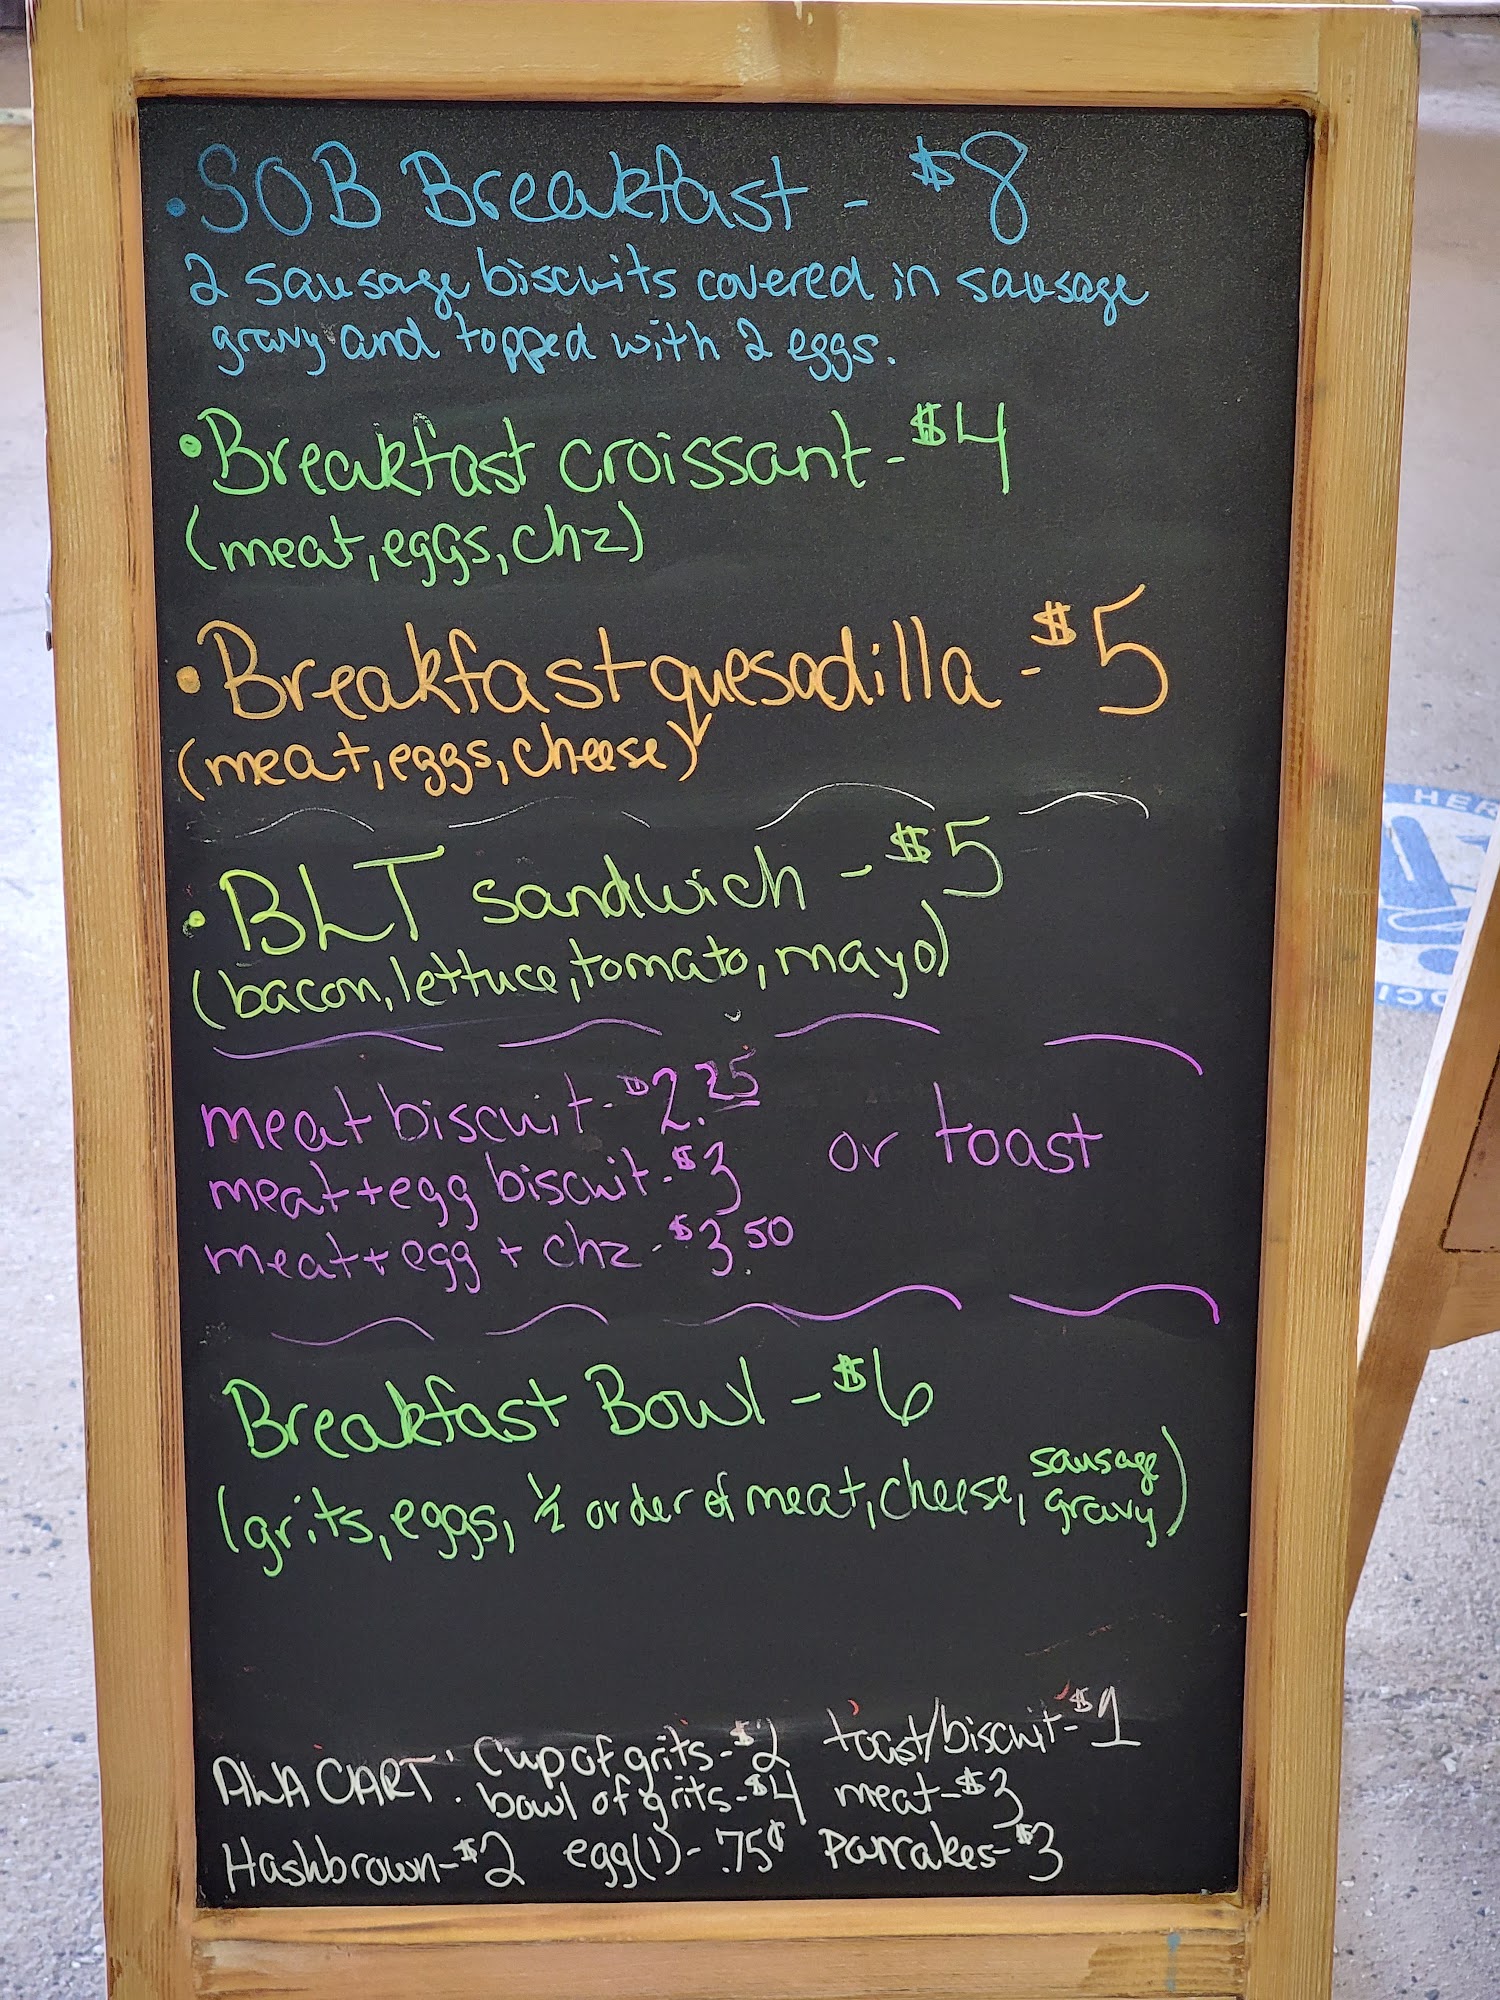 • SOB Breakfast - $8
2 sausage biscuits covered in sausage
gravy and topped with 2 eggs.
• Breakfast croissant - $4
(meat, eggs, chz)
• Breakfast quesadilla - $5
(meat, eggs, cheese)
• BLT sandwich - $5
(bacon, lettuce, tomato, mayo)
meat biscuit - $2.25
meat + egg biscuit - $3 or toast
meat + egg + chz - $3.50
Breakfast Bowl - $6
(grits, eggs, ½ order of meat, cheese, sausage gravy)
ALA CART: Cup of grits - $2 toast/biscuit - $1
bowl of grits - $4 meat - $3
Hashbrown - $2 egg(1) - .75¢ Pancakes - $3
HER
OCI